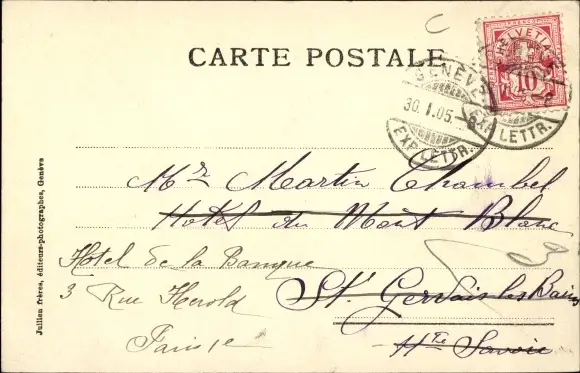 CARTE POSTALE
HELVETIA
FRANCO
10
GENÈVE
30.I.05.
EXP. LETTR.
EXP. LETTR.
Mr Martin Chambel
Hotel du Mont Blanc
Hotel de la Banque
3 Rue Herold
St Gervais les Bains
Paris 1e
Hte Savoie
Jullien frères, éditeurs-photographes, Genève